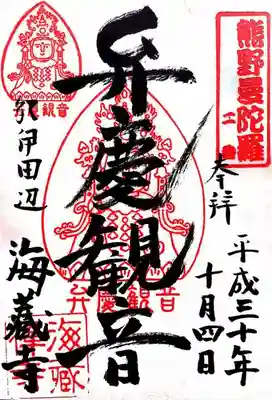 熊野曼陀羅
奉拝
平成三十年
十月四日
弁慶観音
弁慶観音
紀伊田辺
海蔵寺
海蔵